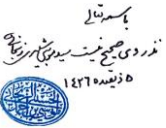 باسمه تعالی
نذر وی صحیح نیست سید موسی شبیری زنجانی
۵ ذیقعده ۱۴۳۶